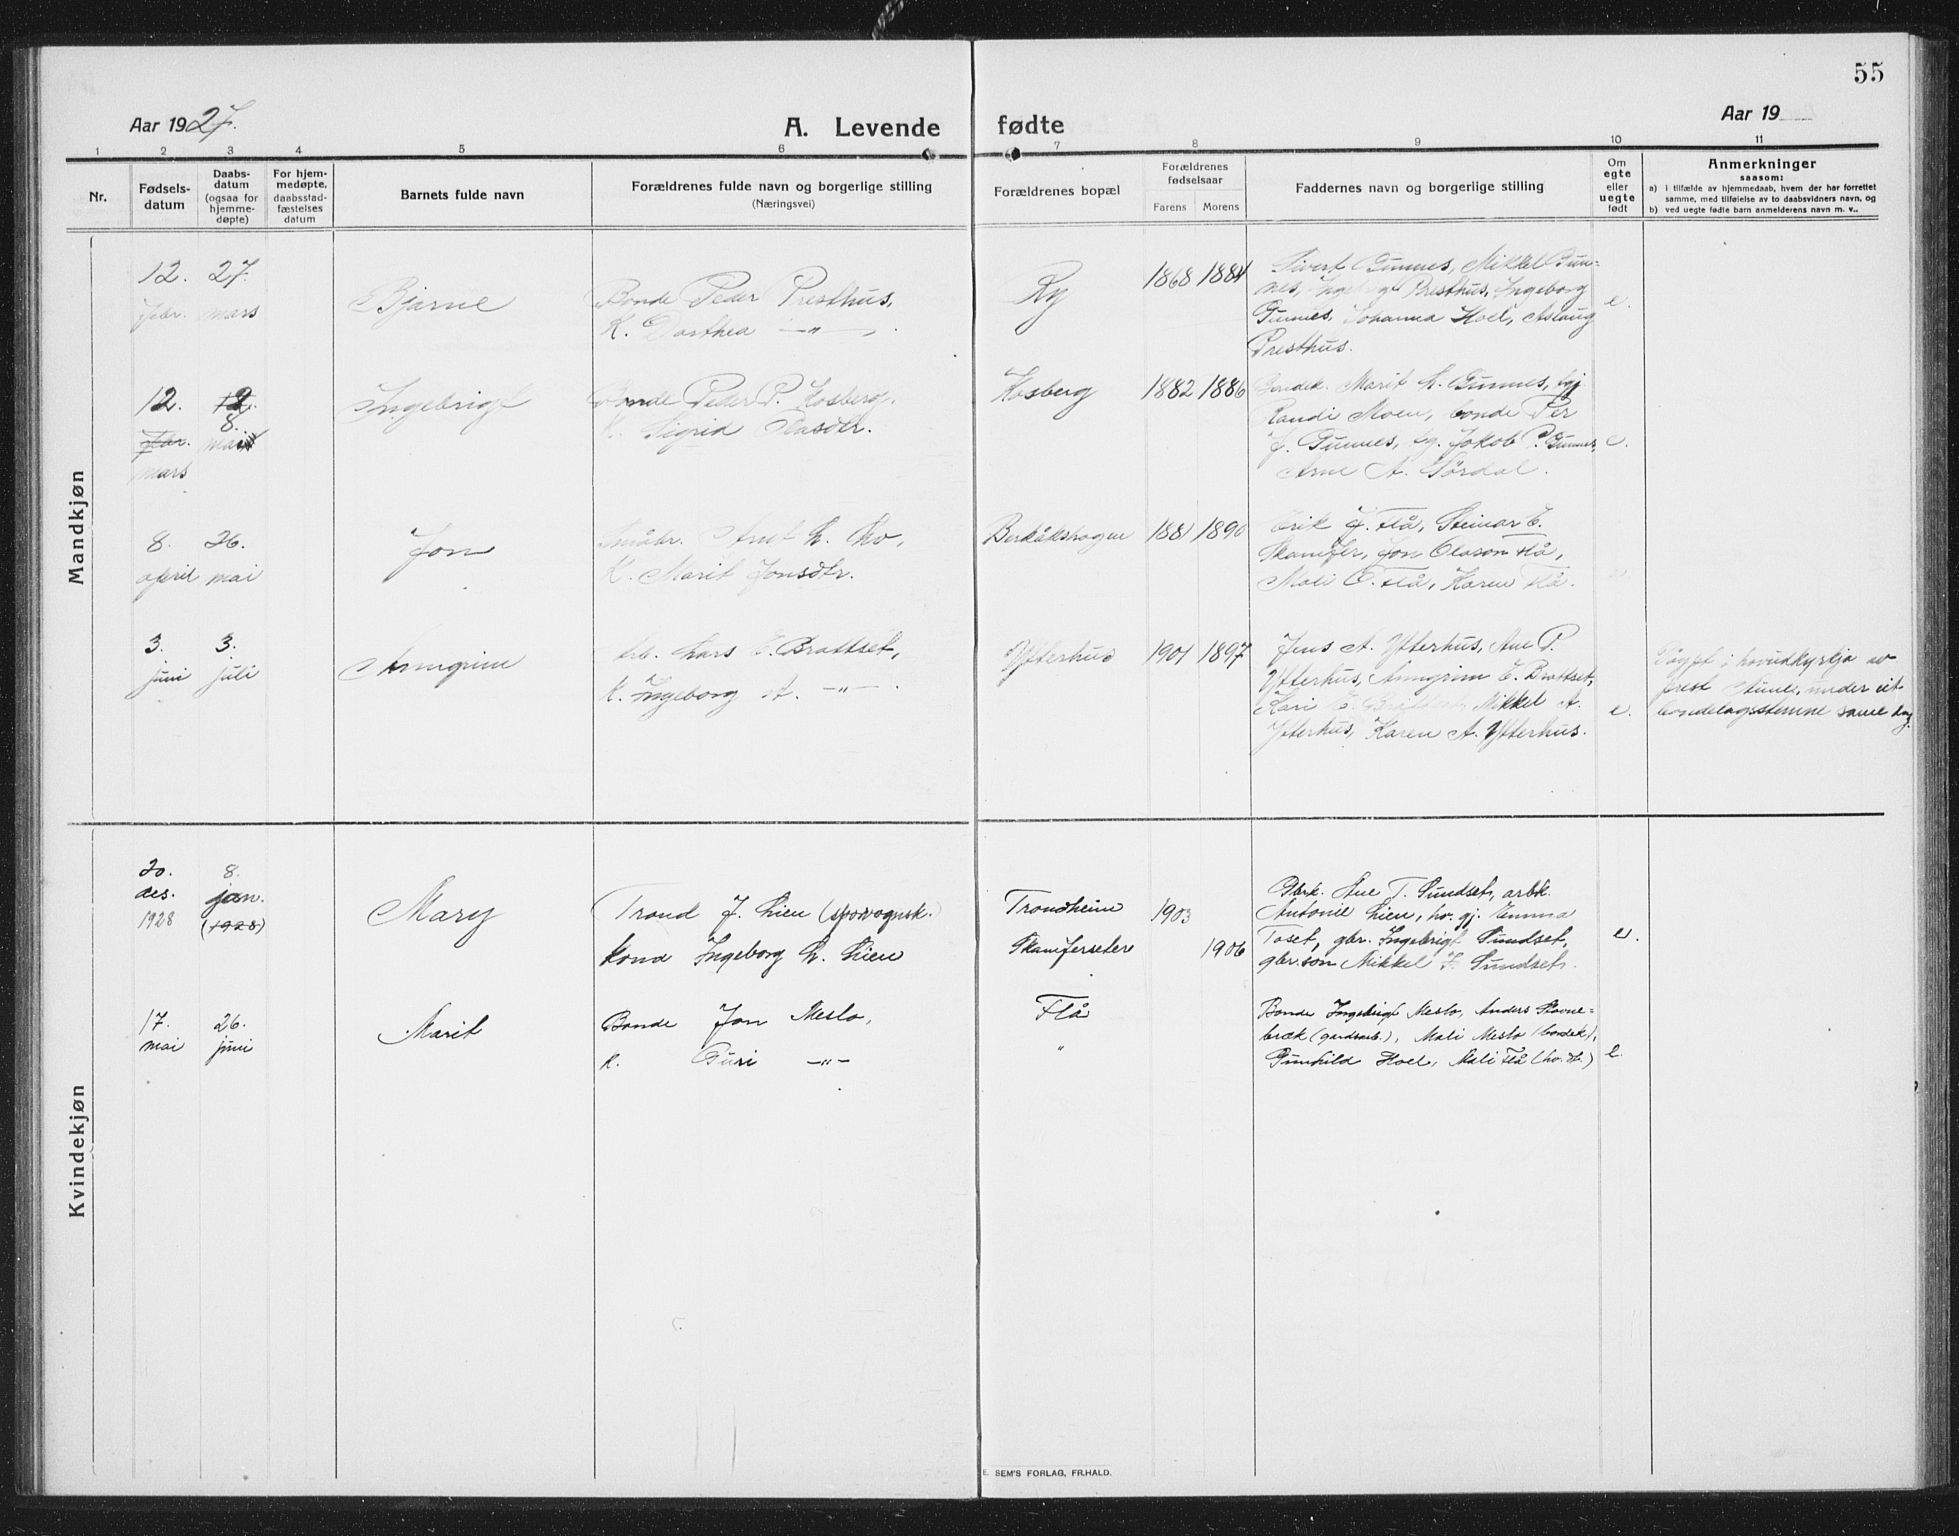 55
Aar 1927.
A. Levende fødte
Aar 19
1 2 3 4 5 6 7 8 9 10 11
Nr.
Fødsels-
datum
Daabs-
datum
(ogsaa for
hjemme-
døpte)
For hjem-
medøpte,
daabsstad-
fæstelses
datum
Barnets fulde navn
Forældrenes fulde navn og borgerlige stilling
(Næringsvei)
Forældrenes bopæl
Forældrenes
fødselsaar
Farens Morens
Faddernes navn og borgerlige stilling
Om
egte
eller
uegte
født
Anmerkninger
saasom:
a) i tilfælde av hjemmedaab, hvem der har forrettet
samme, med tilføielse av to daabsvidners navn, og
b) ved uegte fødte barn anmelderens navn m. v..
Mandkjøn
12. 27.
febr. mars
Bjarne
Bonde Peder Presthus,
K. Dorthea —"—
Ry
1868 1884
Sivert Gunnes, Mikkel Gun-
nes, Presthus, Ingeborg
Gunnes, Johanna Hoel, Aslaug
Presthus.
e.
12. 8.
mars mai
Ingebrigt
Bonde Peder P. Kosberg,
K. Sigrid Olasdtr.
Kosberg
1882 1886
Bondek. Marit Gunnes,
Randi Moen, bonde Per
J. Gunnes, Jakob P. Gunnes,
Arne A. Sørdal.
e.
8. 26.
april mai
Jon
Småbr. Arnt
K. Marit Jonsdtr.
Berkåkshagen
1881 1890
Erik J. Flå, Steinar E.
Skamfer, Jon Olason Flå,
Mali Flå, Karen Flå.
e.
3. 3.
juni juli
Anngrim
Arb. Lars E. Brattset,
K. Ingeborg A. —"—
Ytterhus
1901 1897
Jens A. Ytterhus, Ane P.
Ytterhus, Anngrim E. Brattset,
Kari E. Brattset, Mikkel A.
Ytterhus, Karen A. Ytterhus.
e.
Døypt i hovudkyrkja av
prest under eit
bondelagsstemne same dag.
Kvindekjøn
20. 8.
des. jan.
1928 (1928)
Mary
Trond J. Lien (sporvognsk.)
kona Ingeborg L. Lien
Trondheim
Skamfersæter
1903
1906
Gbrk. Ane T. Sundset, arbk.
Antonie Lien, ho. gj. Emma
Toset, gbr. Ingebrigt Sundset,
gbr.son Mikkel I. Sundset.
e.
17. 26.
mai juni
Marit
Bonde Jon Meslo,
k. Guri —"—
Flå
"
Bonde Ingebrigt Meslo, Anders Skovne-
bræk (gardsarb.), Mali Meslo (bondek),
Gunhild Hoel, Mali Flå
e.
E. SEM'S FORLAG, FR.HALD.